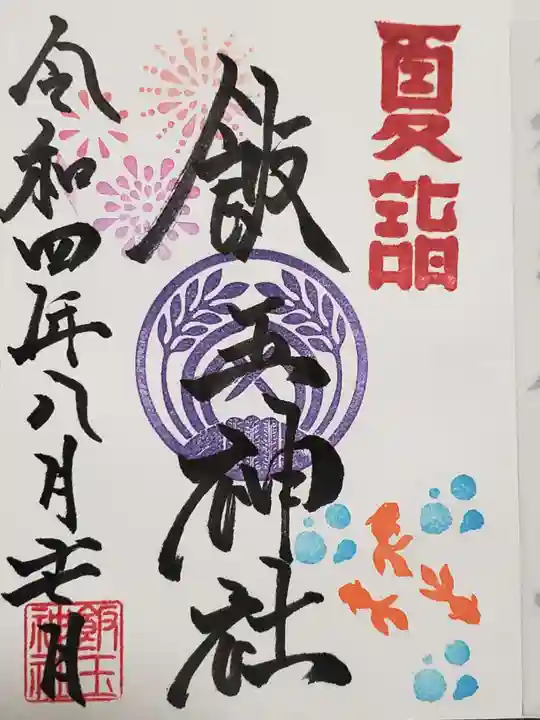 夏詣
飯玉神社
令和四年八月
飯玉
神社